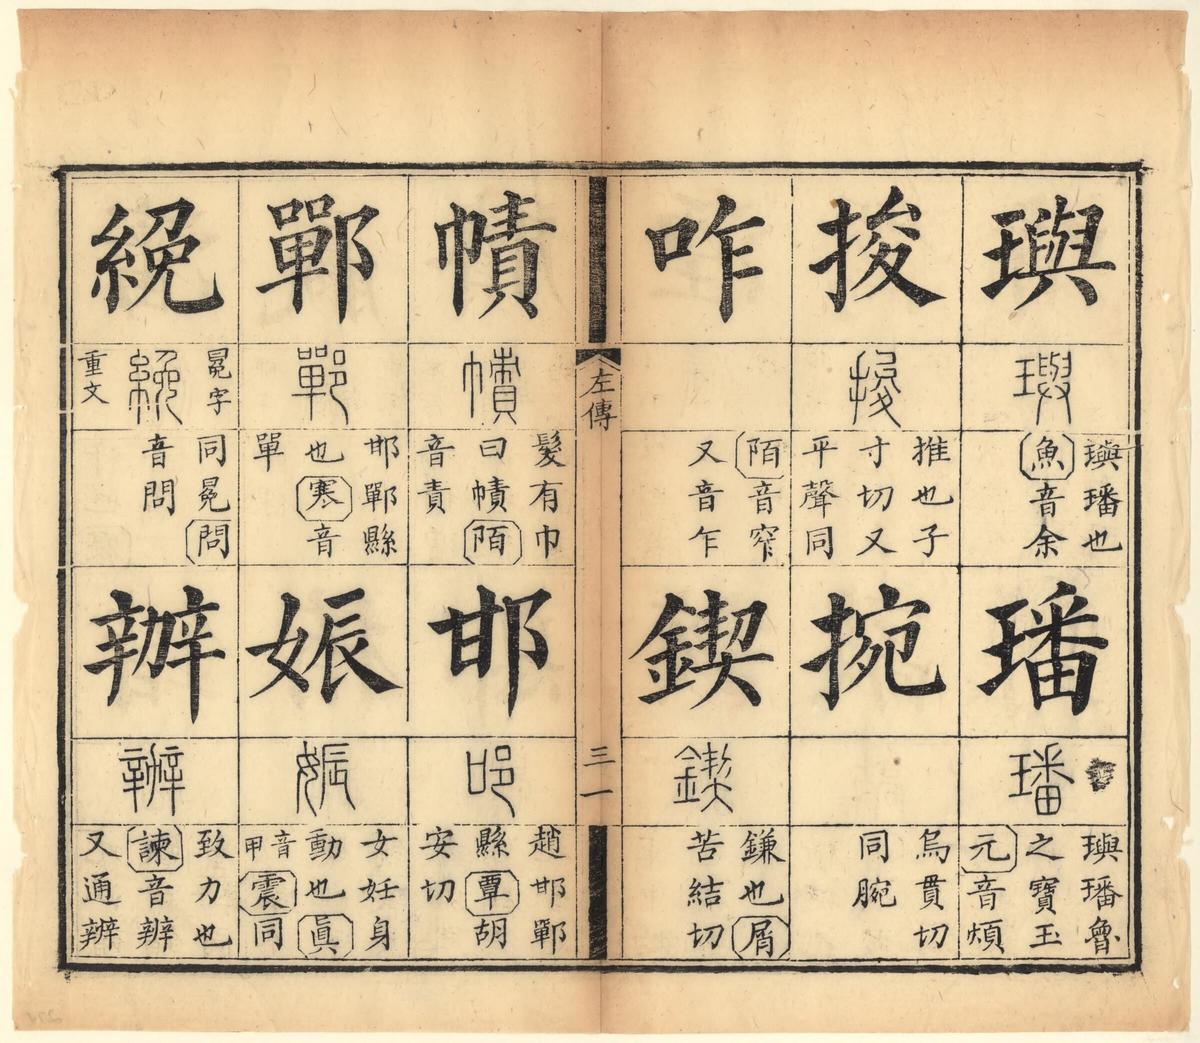 璵
璵
璵璠也
魚音余
璠
璠
璵璠魯
之寶玉
元音煩
捘
捘
推也子
寸切又
平聲同
捥
烏貫切
同腕
咋
陌音窄
又音乍
鍥
鍥
鎌也屑
苦結切
左傳
三一
幘
幘
髮有巾
曰幘陌
音責
邯
邯
趙邯鄲
縣覃胡
安切
鄲
鄲
邯鄲縣
也寒音
單
娠
娠
女妊身
動也眞
音甲震同
絻
冕字
絻
重文
同冕問
音問
辦
辦
致力也
諫音辨
又通辨